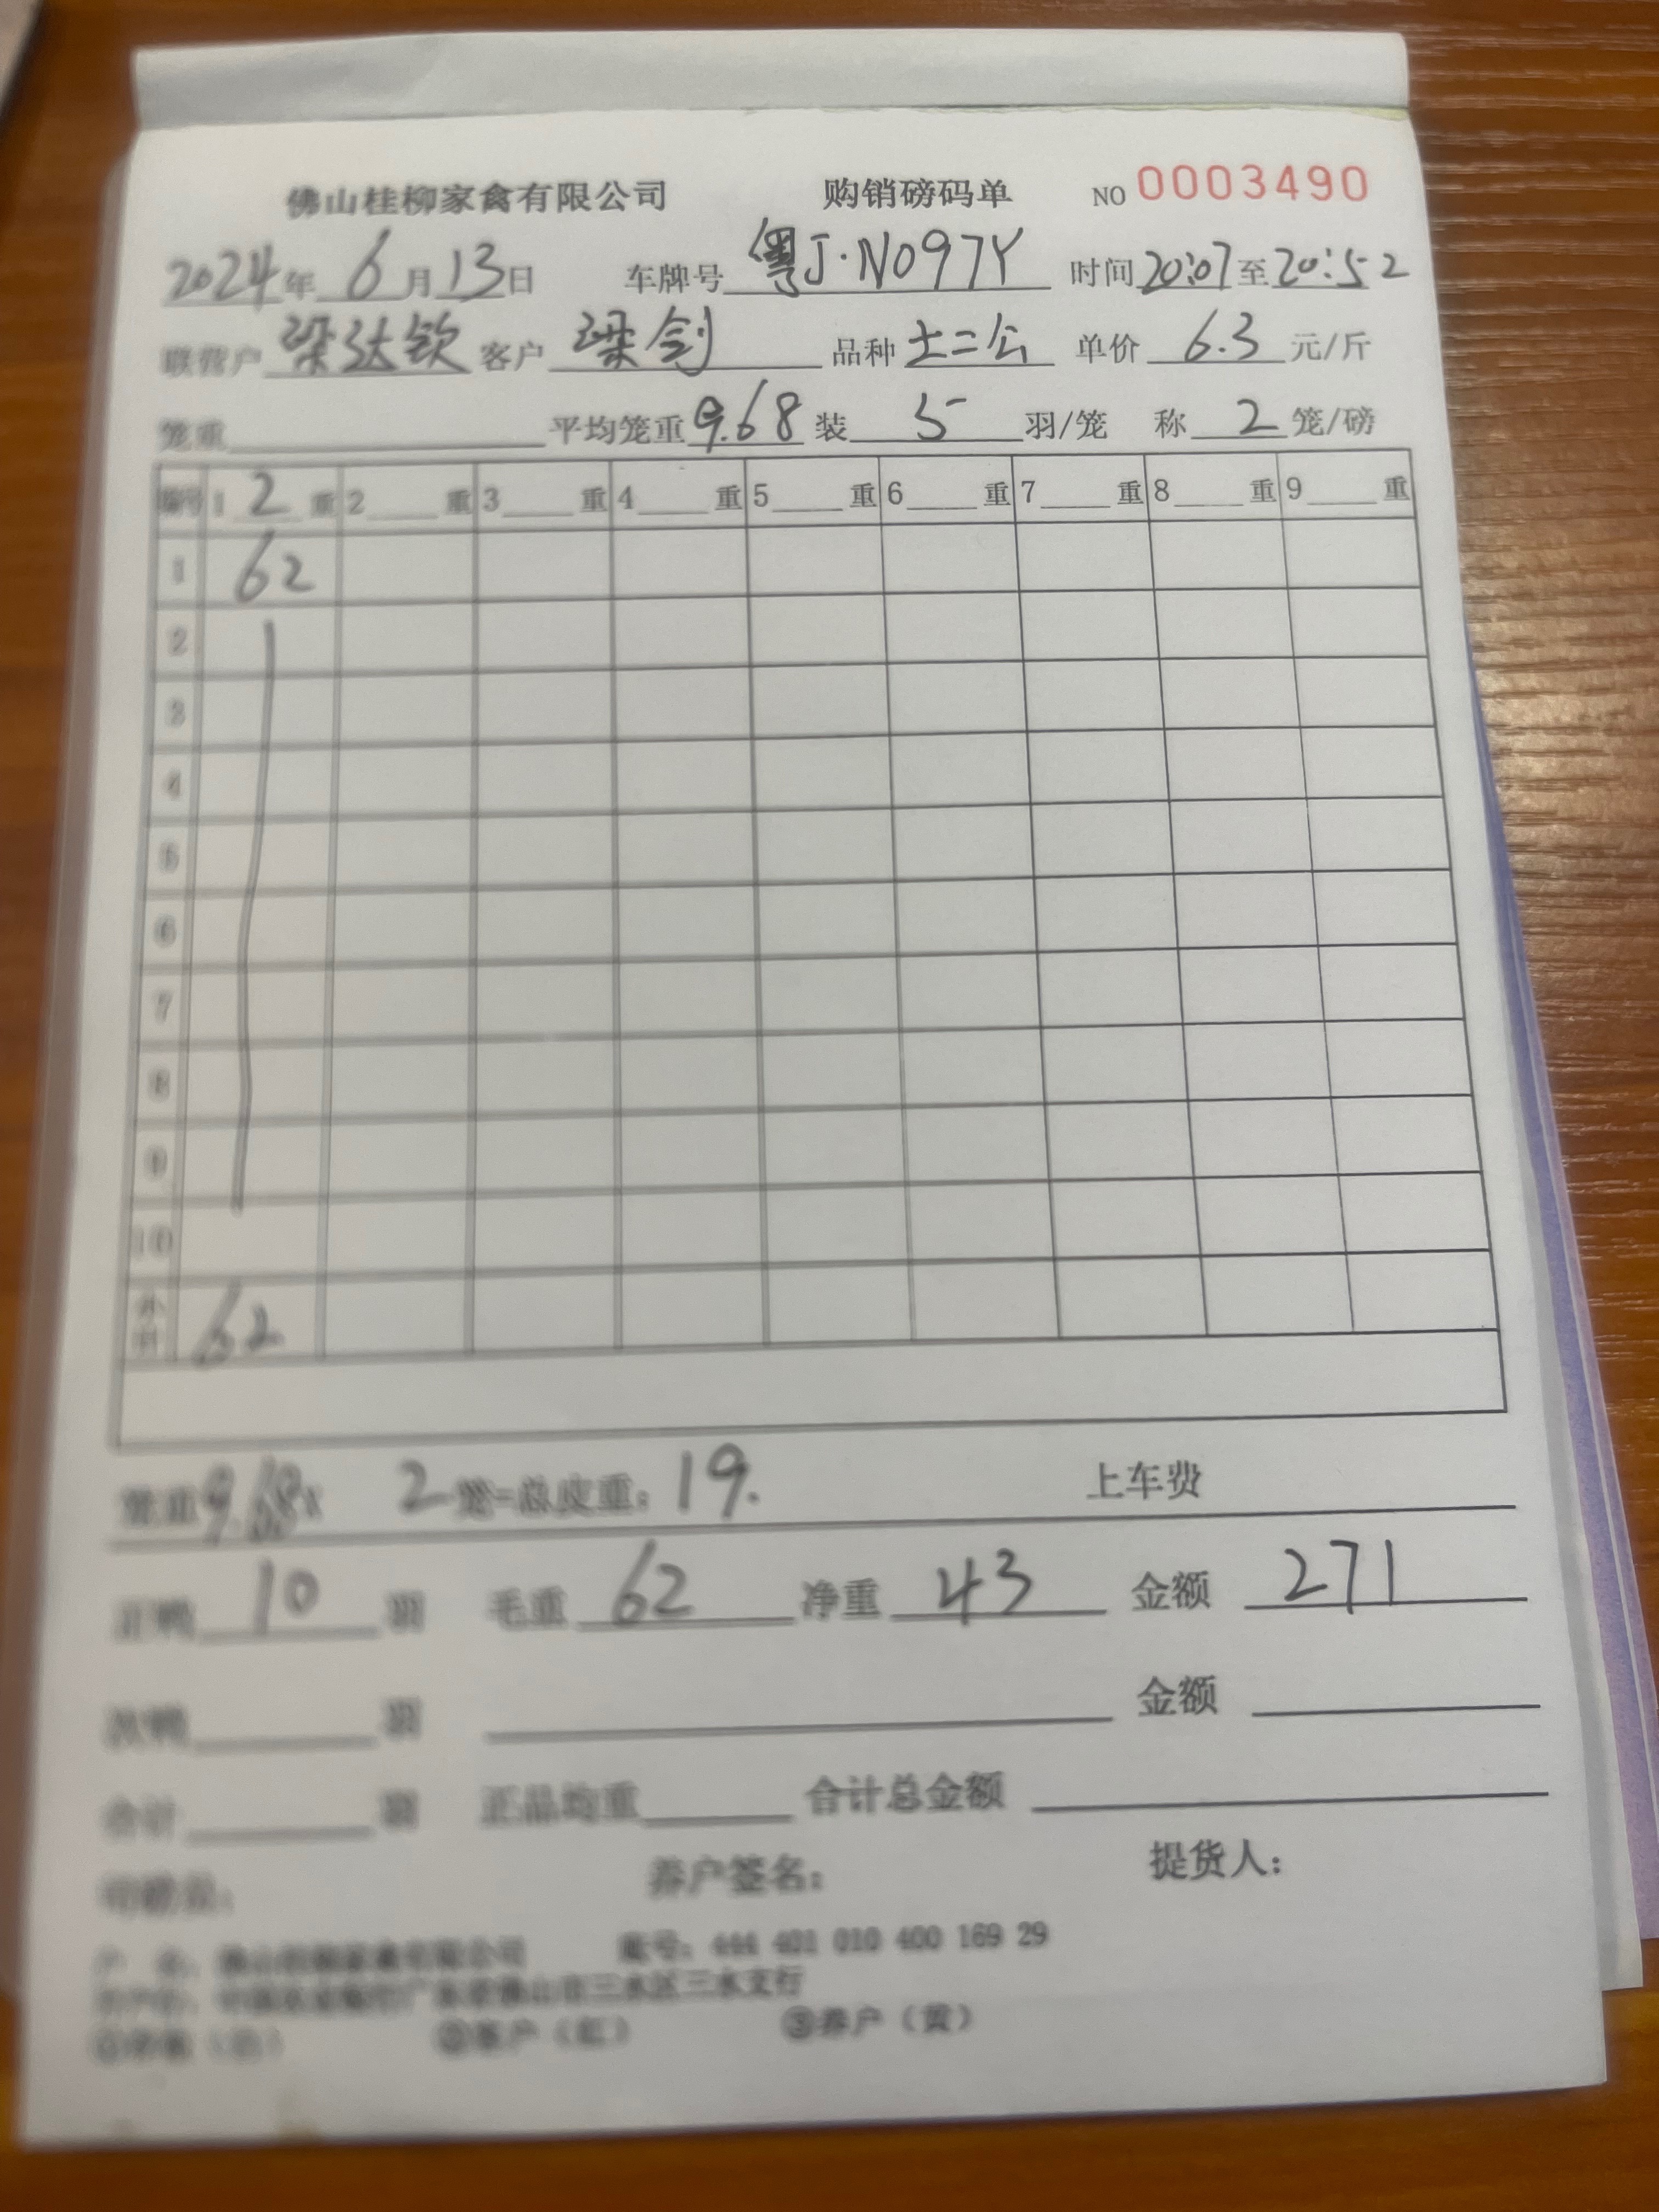 佛山桂柳家禽有限公司 购销磅码单 NO 0003490
2024年 6月13日 车牌号 粤J·N097Y 时间20:07至20:52
联营户 梁达钦 客户 梁剑 品种 土二公 单价 6.3 元/斤
笼重 平均笼重 9.68 装 5 羽/笼 称 2 笼/磅
编号 1 2 重 2 重 3 重 4 重 5 重 6 重 7 重 8 重 9 重
1 62
2
3
4
5
6
7
8
9
10
小计 62
笼重 9.68 x 2 笼=总皮重: 19. 上车费
正鸭 10 羽 毛重 62 净重 43 金额 271
次鸭 羽 金额
合计 羽 正品均重 合计总金额
司磅员: 养户签名: 提货人:
户 名: 佛山桂柳家禽有限公司 账号: 444 401 010 400 169 29
广东省佛山市三水区三水支行
②客户(红) ③养户(黄)